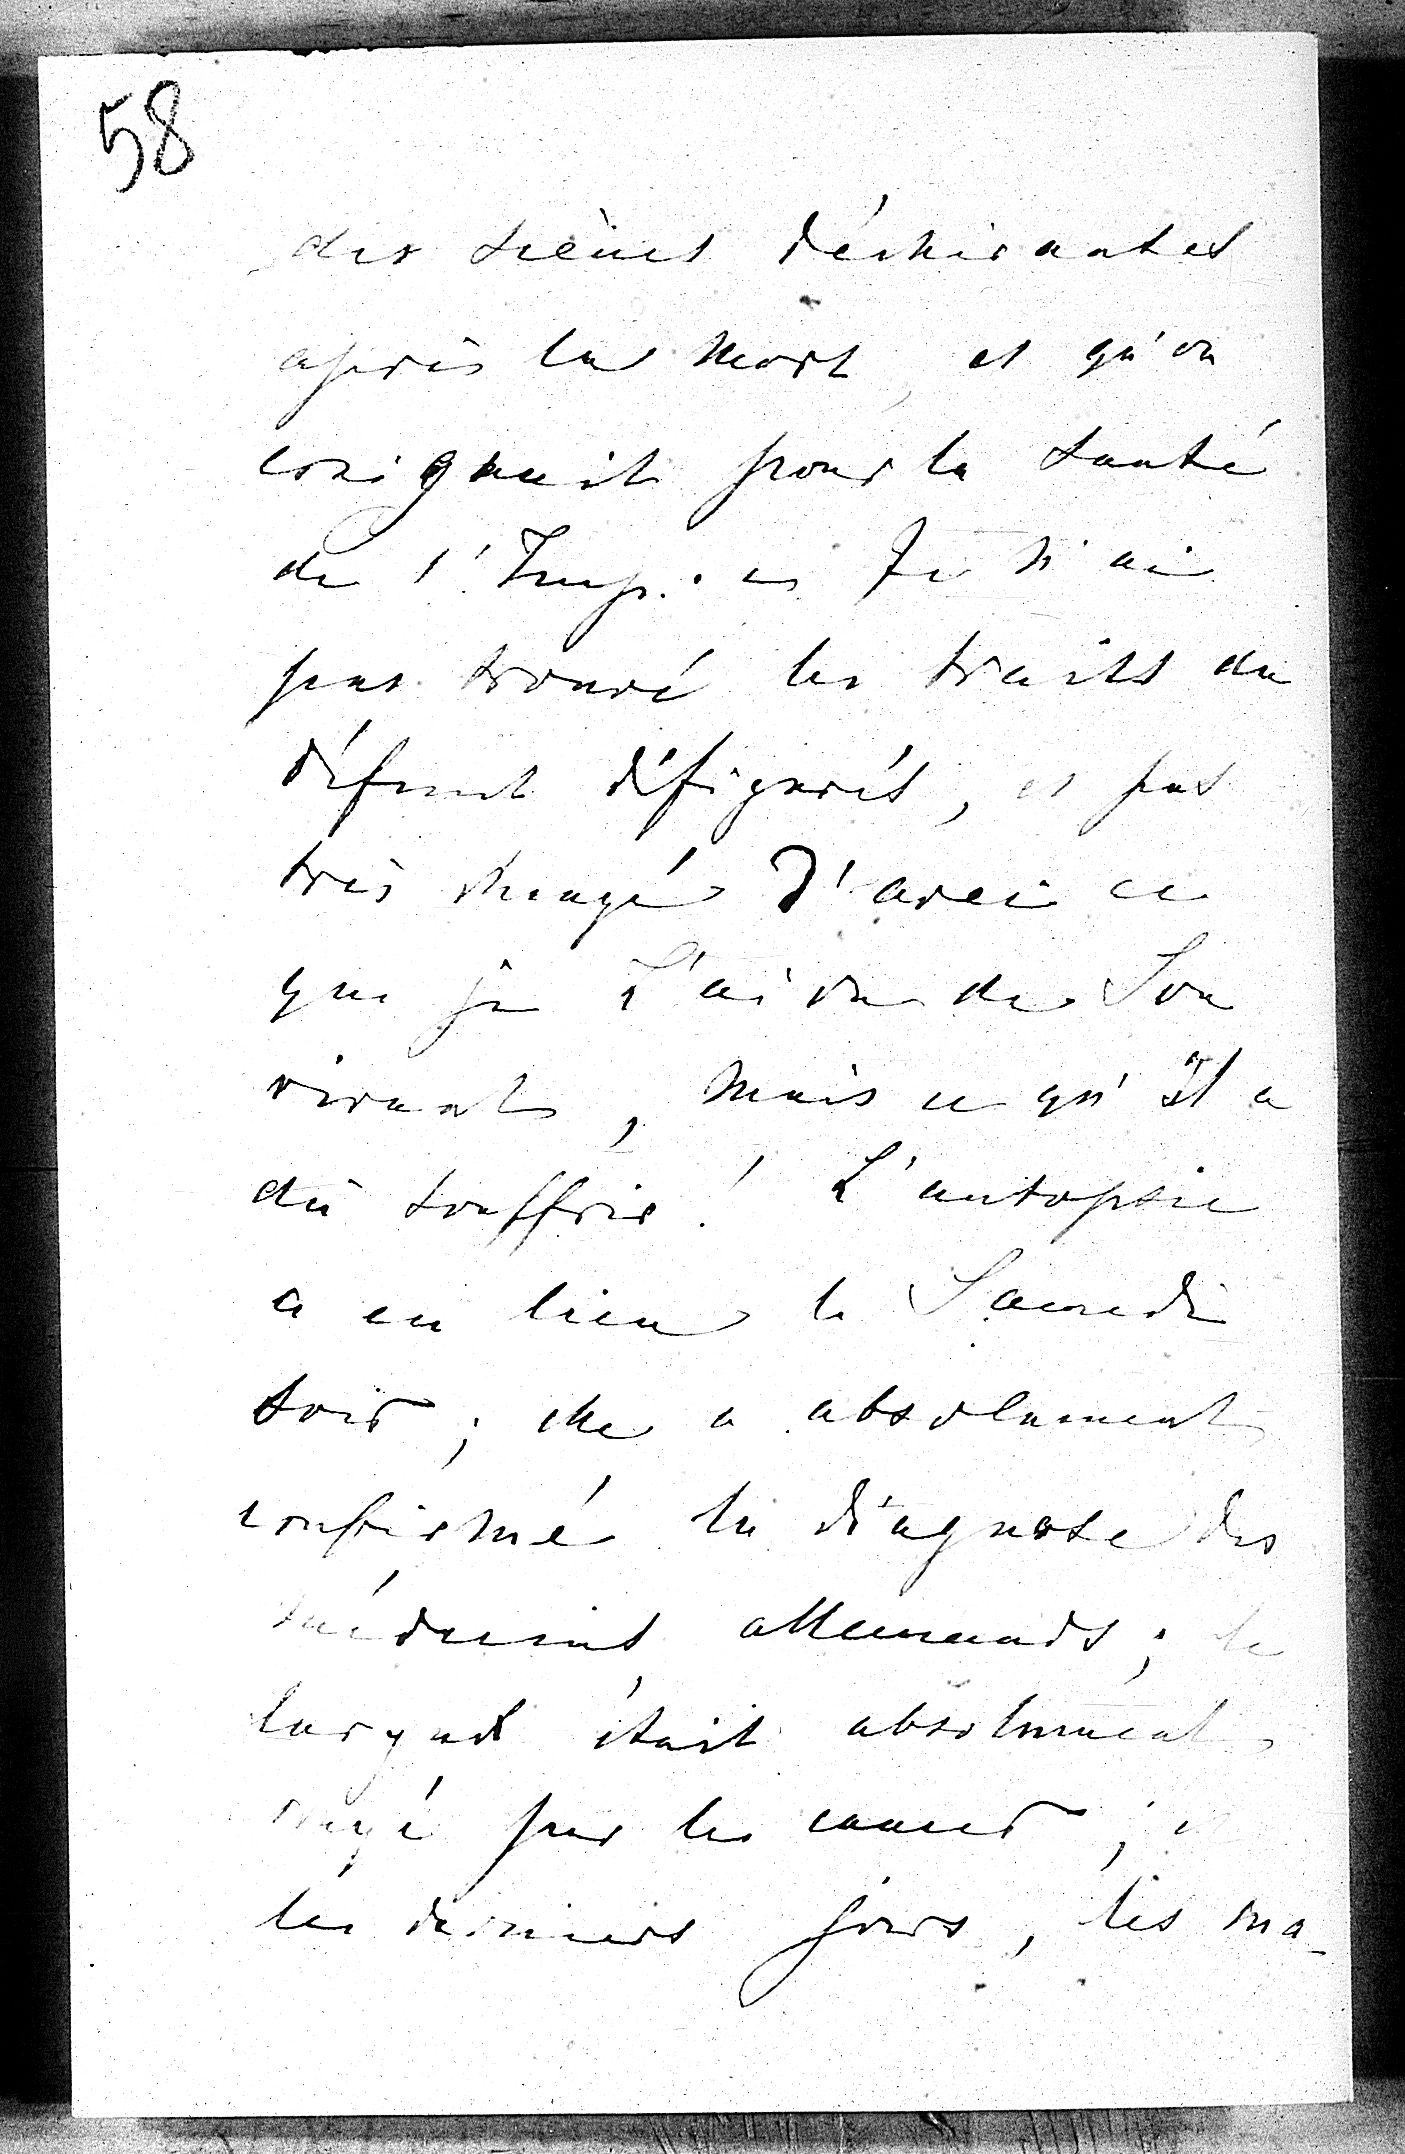 58
des scènes déchirantes
après la mort, et qu'on
craignait pour la santé
de l'Imp. Je n'ai
pas trouvé les traits du
défunt défigurés, et pas
très changé d'avec ce
que je L'ai vu de Son
vivant, mais ce qu'Il a
dû souffrir! L'autopsie
a eu lieu le Samedi
soir; elle a absolument
confirmé la diagnose des
médecins allemands; le
larynx était absolument
rongé par le cancer;
les derniers jours, les ma-